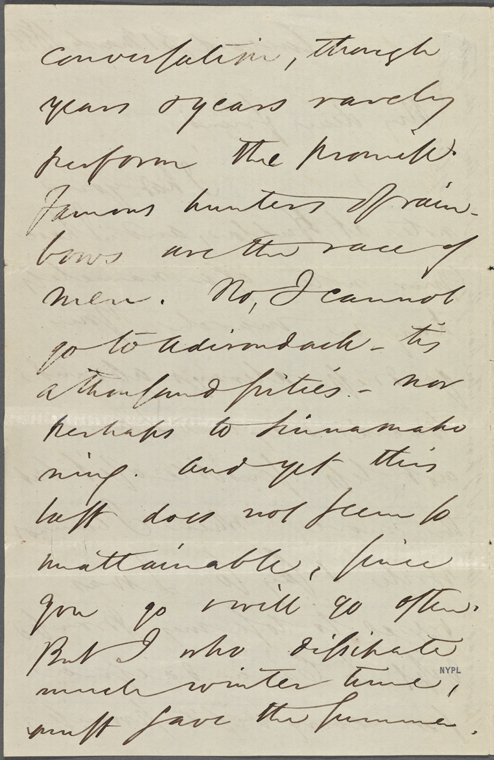 conversation, though
years & years rarely
perform the promise.
Famous hunters of rain-
bows are the race of
men. No, I cannot
go to Adirondack - tis
a thousand pities. - nor
perhaps to Sinnamaho
ning. And yet this
last does not seem so
unattainable, since
you go & will go often.
But I who dissipate
much winter time,
must save the summer.
NYPL